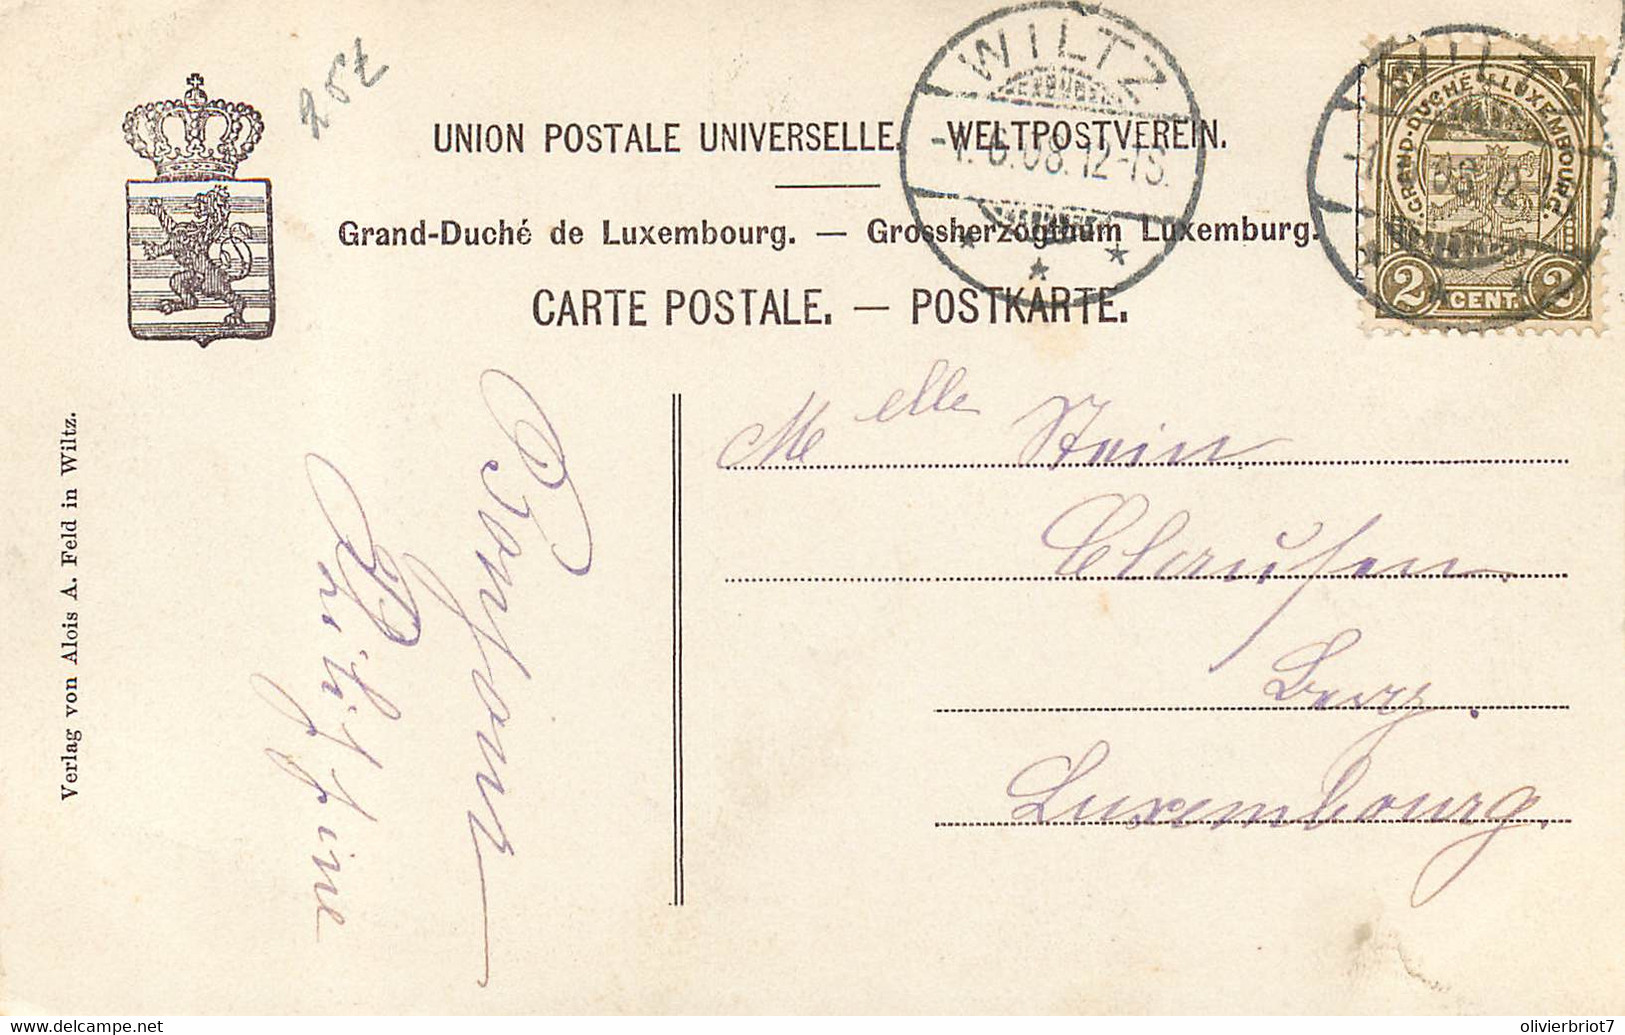 25Z
UNION POSTALE UNIVERSELLE. WELTPOSTVEREIN.
Grand-Duché de Luxembourg. — Grossherzogthum Luxemburg.
CARTE POSTALE. — POSTKARTE.
WILTZ
6.08.12-1S.
WILTZ
GRAND-DUCHÉ D LUXEMBOURG.
2 CENT. 2
Verlag von Alois A. Feld in Wiltz.
Bonjour
Melle Stein
Clausen.
Berg.
Luxembourg.
Delcampe.net
olivierbriot7